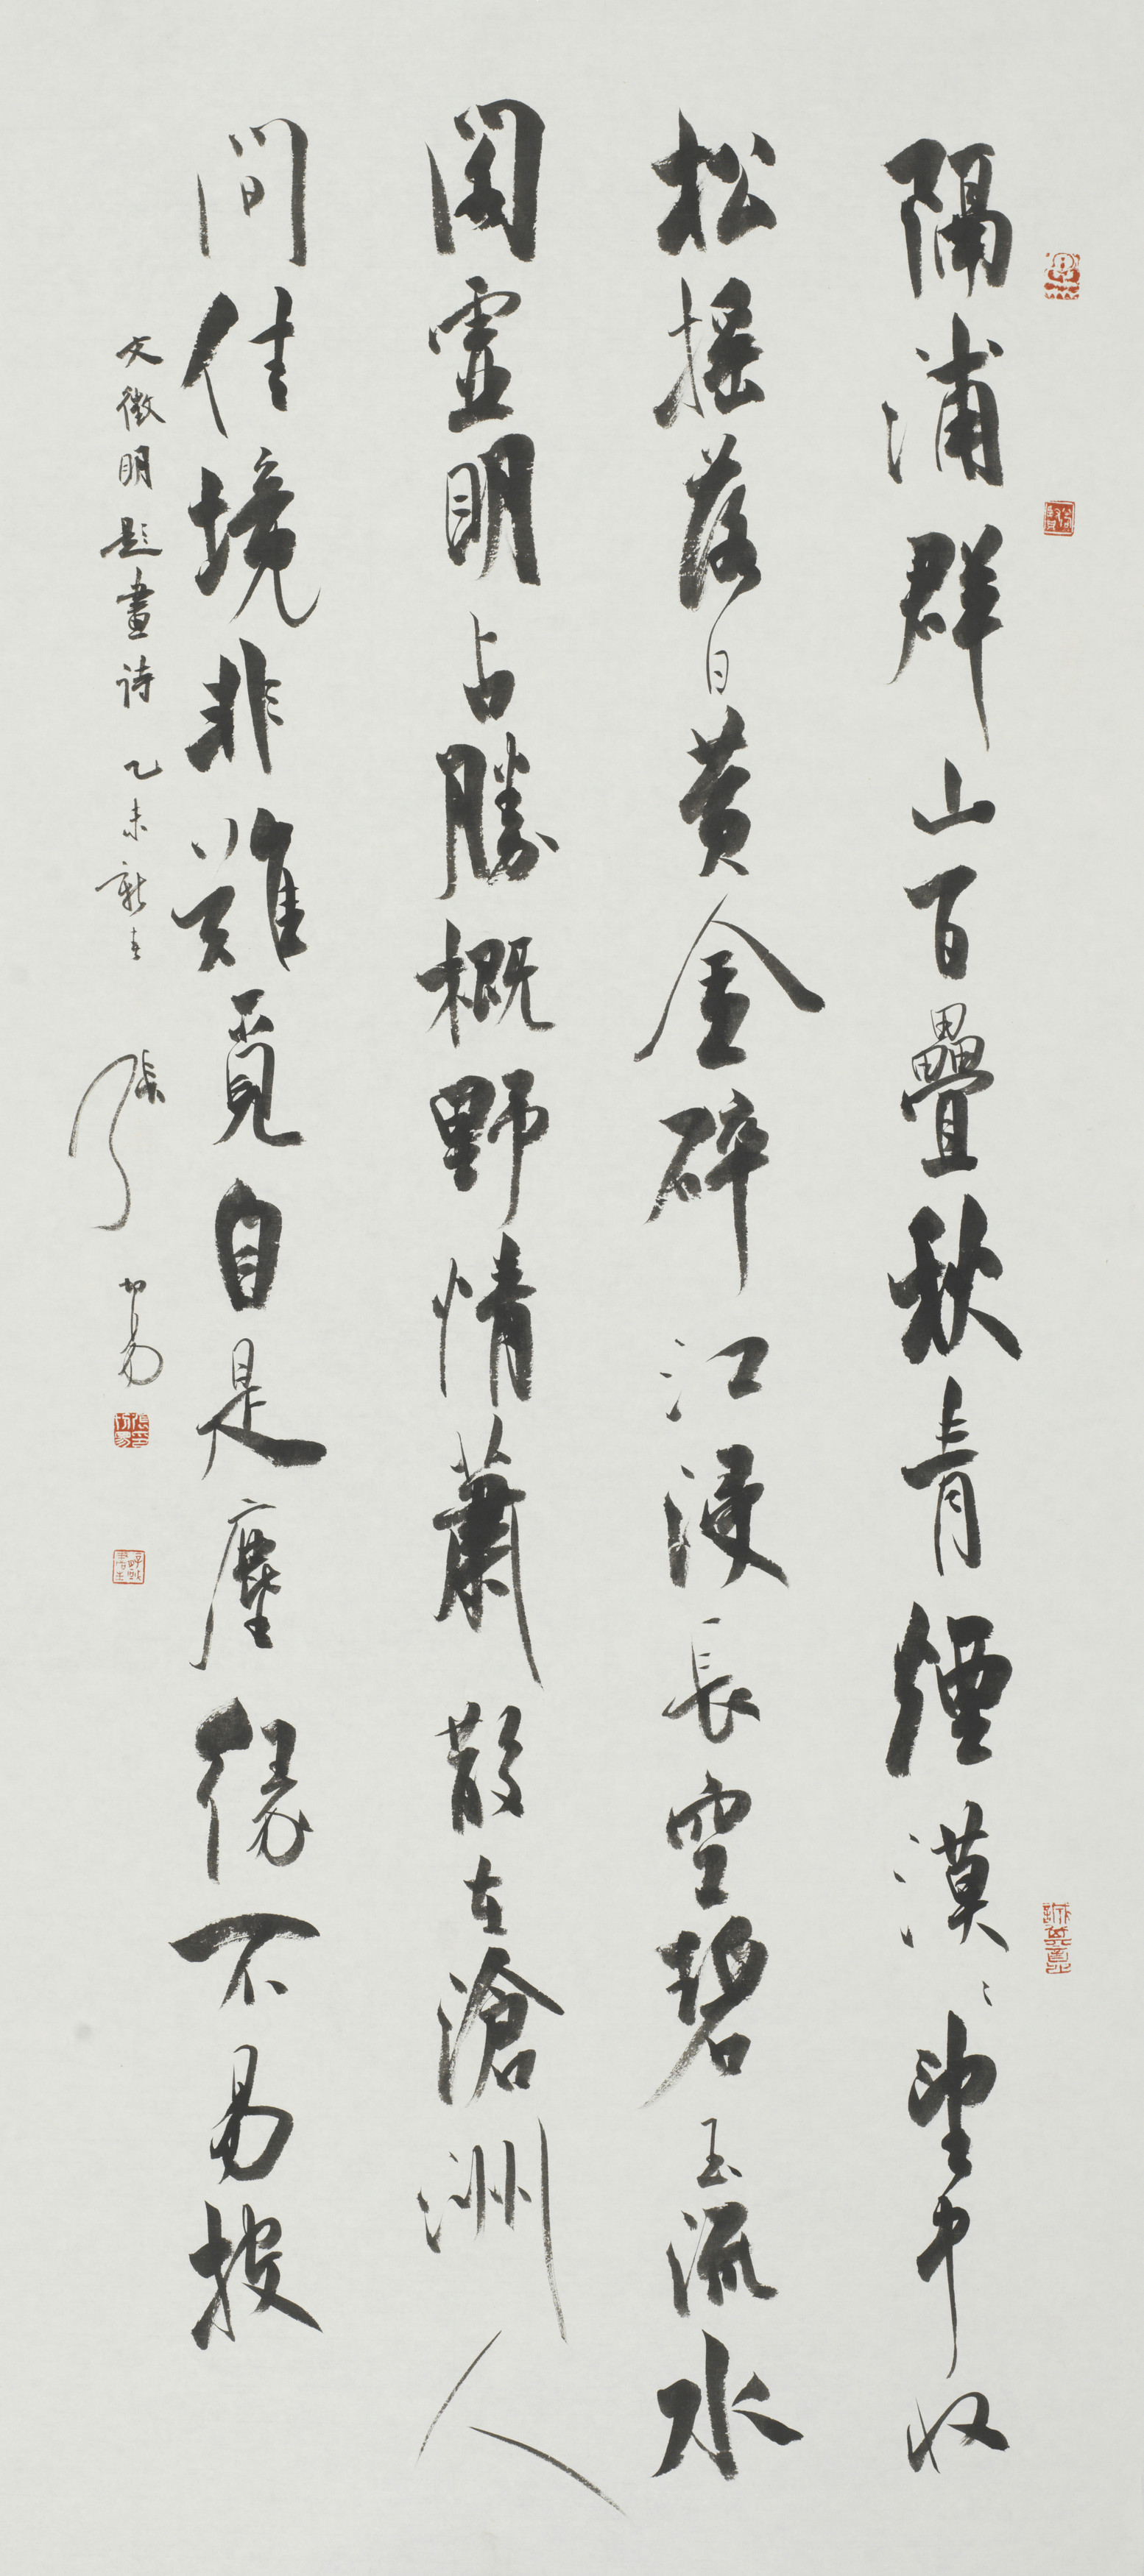 隔浦群山百疊秋青煙漠〻望中收
松搖落日黃金碎江浸長空碧玉流水
閣虛明占勝概野情蕭散在滄洲人
間佳境非難覓自是塵緣不易投
文徵明題畫詩 乙未新春
張